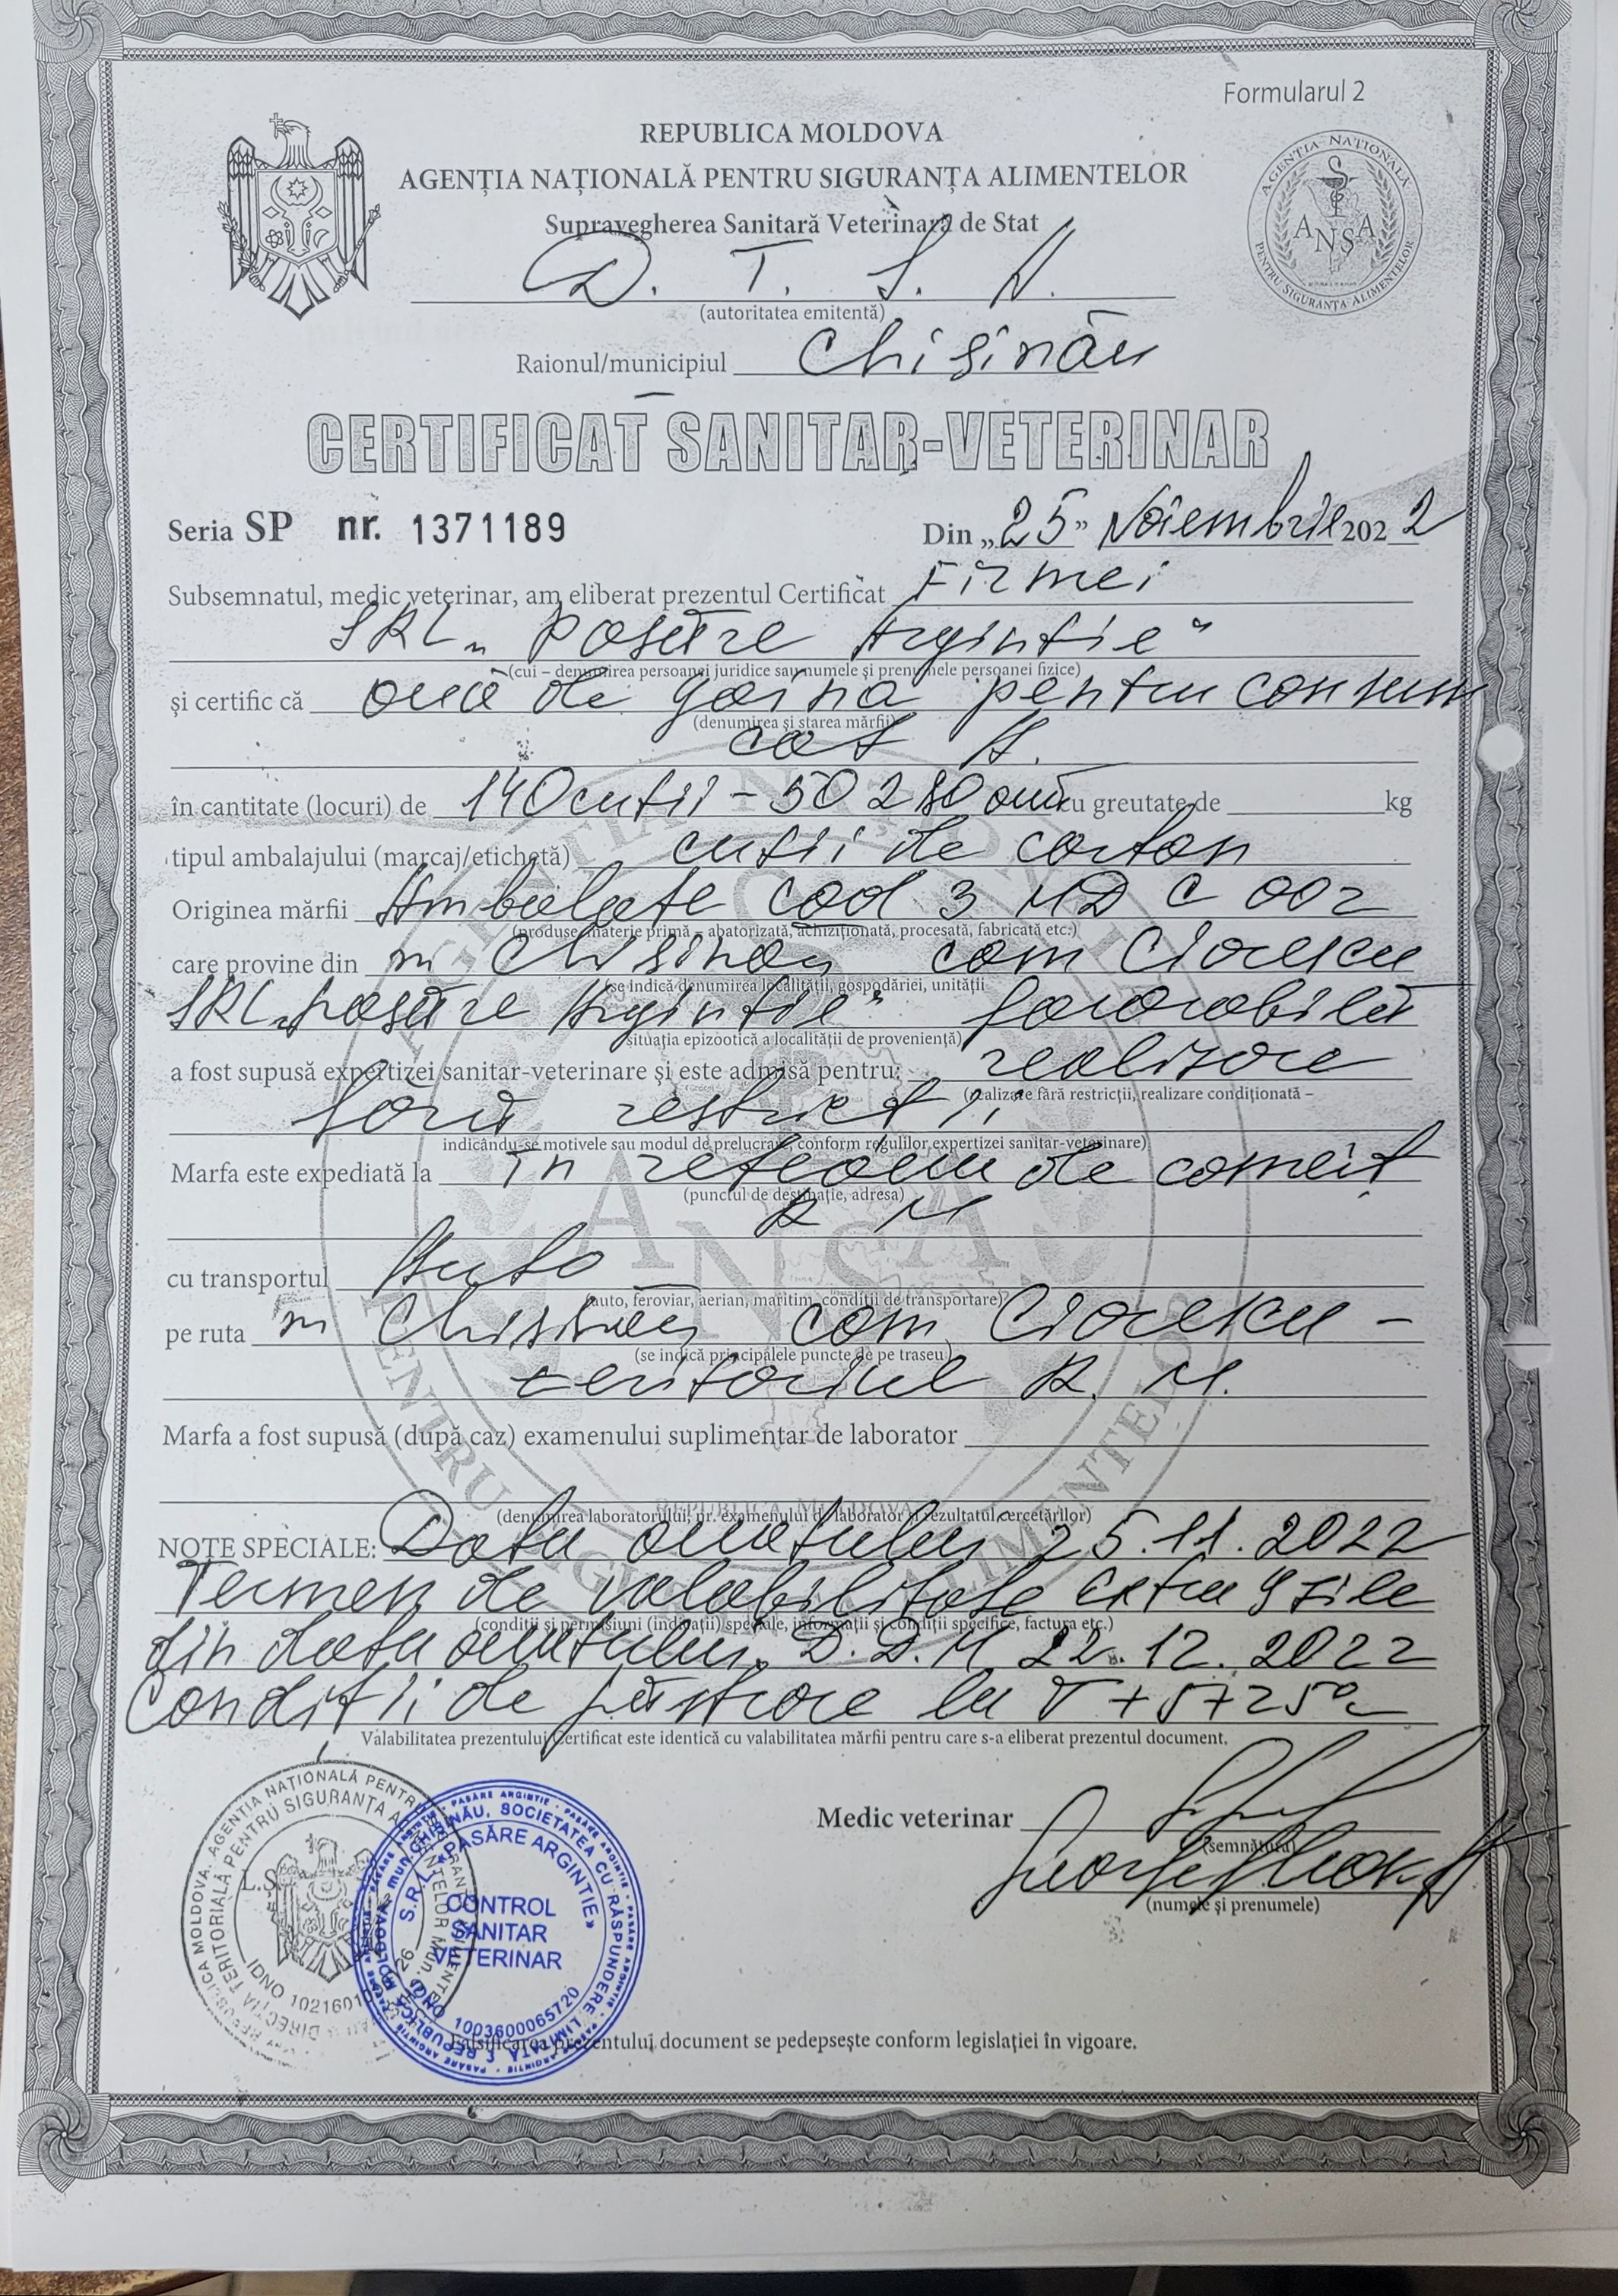 Formularul 2
REPUBLICA MOLDOVA
AGENȚIA NAȚIONALĂ PENTRU SIGURANȚA ALIMENTELOR
Supravegherea Sanitară Veterinară de Stat
D. T. S. A.
(autoritatea emitentă)
Raionul/municipiul Chișinău
CERTIFICAT SANITAR-VETERINAR
Seria SP nr. 1371189 Din „25” Noiembrie 2022
Subsemnatul, medic veterinar, am eliberat prezentul Certificat Firmei
SRL „Pasăre Argintie“
(cui – denumirea persoanei juridice sau numele și prenumele persoanei fizice)
și certific că ouă de găină pentru consum
(denumirea și starea mărfii)
cat A.
în cantitate (locuri) de 140 cutii - 50 280 ouă cu greutate de kg
tipul ambalajului (marcaj/etichetă) cutii de carton
Originea mărfii Ambalate cod 3 MD C 002
(produse, materie primă – abatorizată, achiziționată, procesată, fabricată etc.)
care provine din m Chișinău com Ciorescu
(se indică denumirea localității, gospodăriei, unității
SRL „Pasăre Argintie“ favorabilă
situația epizootică a localității de proveniență)
a fost supusă expertizei sanitar-veterinare și este admisă pentru: realizare
(realizare fără restricții, realizare condiționată –
fără restricții
indicându-se motivele sau modul de prelucrare, conform regulilor expertizei sanitar-veterinare)
Marfa este expediată la în rețeaua de comerț
(punctul de destinație, adresa)
R M
cu transportul Auto
(auto, feroviar, aerian, maritim, condiții de transportare)
pe ruta m Chișinău com Ciorescu -
(se indică principalele puncte de pe traseu)
teritoriul R. M.
Marfa a fost supusă (după caz) examenului suplimentar de laborator
(denumirea laboratorului, nr. examenului de laborator și rezultatul cercetărilor)
NOTE SPECIALE: Data ouatului 25.11.2022
Termen de valabilitate extra 9 zile
(condiții și permisiuni (indicații) speciale, informații și condiții specifice, factura etc.)
din data ouatului. D.D.M 22.12.2022
Condiții de păstrare la T +5+25°C
Valabilitatea prezentului Certificat este identică cu valabilitatea mărfii pentru care s-a eliberat prezentul document.
Medic veterinar
(semnătura)
(numele și prenumele)
L.S.
CONTROL
SANITAR
VETERINAR
S.R.L. «PASĂRE ARGINTIE»
REPUBLICA MOLDOVA, mun. CHIȘINĂU, SOCIETATEA CU RĂSPUNDERE LIMITATĂ
IDNO 1003600065720
Falsificarea prezentului document se pedepsește conform legislației în vigoare.
AGENȚIA NAȚIONALĂ
PENTRU SIGURANȚA ALIMENTELOR
ANSA